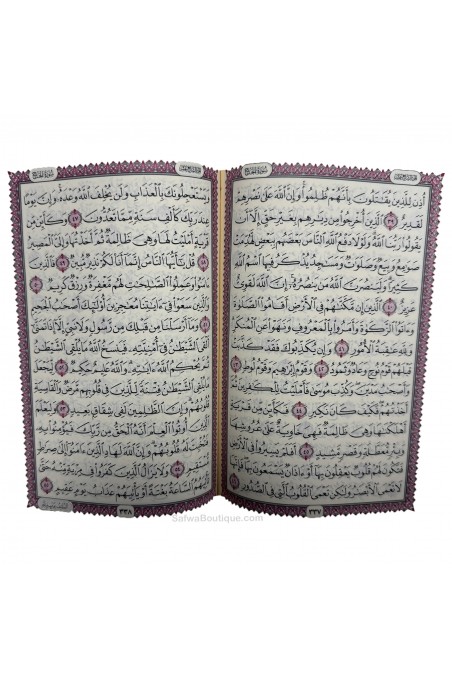 أُذِنَ لِلَّذِينَ يُقَٰتَلُونَ بِأَنَّهُمْ ظُلِمُوا۟ وَإِنَّ ٱللَّهَ عَلَىٰ نَصْرِهِمْ
لَقَدِيرٌ ٣٩ ٱلَّذِينَ أُخْرِجُوا۟ مِن دِيَٰرِهِم بِغَيْرِ حَقٍّ إِلَّآ أَن
يَقُولُوا۟ رَبُّنَا ٱللَّهُ وَلَوْلَا دَفْعُ ٱللَّهِ ٱلنَّاسَ بَعْضَهُم بِبَعْضٍ لَّهُدِّمَتْ
صَوَٰمِعُ وَبِيَعٌ وَصَلَوَٰتٌ وَمَسَٰجِدُ يُذْكَرُ فِيهَا ٱسْمُ ٱللَّهِ
كَثِيرًا وَلَيَنصُرَنَّ ٱللَّهُ مَن يَنصُرُهُۥٓ إِنَّ ٱللَّهَ لَقَوِىٌّ
عَزِيزٌ ٤٠ ٱلَّذِينَ إِن مَّكَّنَّٰهُمْ فِى ٱلْأَرْضِ أَقَامُوا۟ ٱلصَّلَوٰةَ
وَءَاتَوُا۟ ٱلزَّكَوٰةَ وَأَمَرُوا۟ بِٱلْمَعْرُوفِ وَنَهَوْا۟ عَنِ ٱلْمُنكَرِ
وَلِلَّهِ عَٰقِبَةُ ٱلْأُمُورِ ٤١ وَإِن يُكَذِّبُوكَ فَقَدْ كَذَّبَتْ
قَبْلَهُمْ قَوْمُ نُوحٍ وَعَادٌ وَثَمُودُ ٤٢ وَقَوْمُ إِبْرَٰهِيمَ وَقَوْمُ لُوطٍ ٤٣
وَأَصْحَٰبُ مَدْيَنَ وَكُذِّبَ مُوسَىٰ فَأَمْلَيْتُ لِلْكَٰفِرِينَ ثُمَّ
أَخَذْتُهُمْ فَكَيْفَ كَانَ نَكِيرِ ٤٤ فَكَأَيِّن مِّن قَرْيَةٍ
أَهْلَكْنَٰهَا وَهِىَ ظَالِمَةٌ فَهِىَ خَاوِيَةٌ عَلَىٰ عُرُوشِهَا
وَبِئْرٍ مُّعَطَّلَةٍ وَقَصْرٍ مَّشِيدٍ ٤٥ أَفَلَمْ يَسِيرُوا۟ فِى ٱلْأَرْضِ
فَتَكُونَ لَهُمْ قُلُوبٌ يَعْقِلُونَ بِهَآ أَوْ ءَاذَانٌ يَسْمَعُونَ بِهَا فَإِنَّهَا
لَا تَعْمَى ٱلْأَبْصَٰرُ وَلَٰكِن تَعْمَى ٱلْقُلُوبُ ٱلَّتِى فِى ٱلصُّدُورِ ٤٦
٣٣٧
وَيَسْتَعْجِلُونَكَ بِٱلْعَذَابِ وَلَن يُخْلِفَ ٱللَّهُ وَعْدَهُۥ وَإِنَّ يَوْمًا
عِندَ رَبِّكَ كَأَلْفِ سَنَةٍ مِّمَّا تَعُدُّونَ ٤٧ وَكَأَيِّن مِّن
قَرْيَةٍ أَمْلَيْتُ لَهَا وَهِىَ ظَالِمَةٌ ثُمَّ أَخَذْتُهَا وَإِلَىَّ ٱلْمَصِيرُ
٤٨ قُلْ يَٰٓأَيُّهَا ٱلنَّاسُ إِنَّمَآ أَنَا۠ لَكُمْ نَذِيرٌ مُّبِينٌ ٤٩ فَٱلَّذِينَ
ءَامَنُوا۟ وَعَمِلُوا۟ ٱلصَّٰلِحَٰتِ لَهُم مَّغْفِرَةٌ وَرِزْقٌ كَرِيمٌ ٥٠
وَٱلَّذِينَ سَعَوْا۟ فِىٓ ءَايَٰتِنَا مُعَٰجِزِينَ أُو۟لَٰٓئِكَ أَصْحَٰبُ ٱلْجَحِيمِ
٥١ وَمَآ أَرْسَلْنَا مِن قَبْلِكَ مِن رَّسُولٍ وَلَا نَبِىٍّ إِلَّآ إِذَا تَمَنَّىٰٓ
أَلْقَى ٱلشَّيْطَٰنُ فِىٓ أُمْنِيَّتِهِۦ فَيَنسَخُ ٱللَّهُ مَا يُلْقِى ٱلشَّيْطَٰنُ
ثُمَّ يُحْكِمُ ٱللَّهُ ءَايَٰتِهِۦ وَٱللَّهُ عَلِيمٌ حَكِيمٌ ٥٢ لِّيَجْعَلَ
مَا يُلْقِى ٱلشَّيْطَٰنُ فِتْنَةً لِّلَّذِينَ فِى قُلُوبِهِم مَّرَضٌ وَٱلْقَاسِيَةِ
قُلُوبُهُمْ وَإِنَّ ٱلظَّٰلِمِينَ لَفِى شِقَاقٍۭ بَعِيدٍ ٥٣ وَلِيَعْلَمَ
ٱلَّذِينَ أُوتُوا۟ ٱلْعِلْمَ أَنَّهُ ٱلْحَقُّ مِن رَّبِّكَ فَيُؤْمِنُوا۟ بِهِۦ
فَتُخْبِتَ لَهُۥ قُلُوبُهُمْ وَإِنَّ ٱللَّهَ لَهَادِ ٱلَّذِينَ ءَامَنُوٓا۟ إِلَىٰ صِرَٰطٍ
مُّسْتَقِيمٍ ٥٤ وَلَا يَزَالُ ٱلَّذِينَ كَفَرُوا۟ فِى مِرْيَةٍ مِّنْهُ حَتَّىٰ
تَأْتِيَهُمُ ٱلسَّاعَةُ بَغْتَةً أَوْ يَأْتِيَهُمْ عَذَابُ يَوْمٍ عَقِيمٍ ٥٥
٣٣٨
SalwaBoutique.com